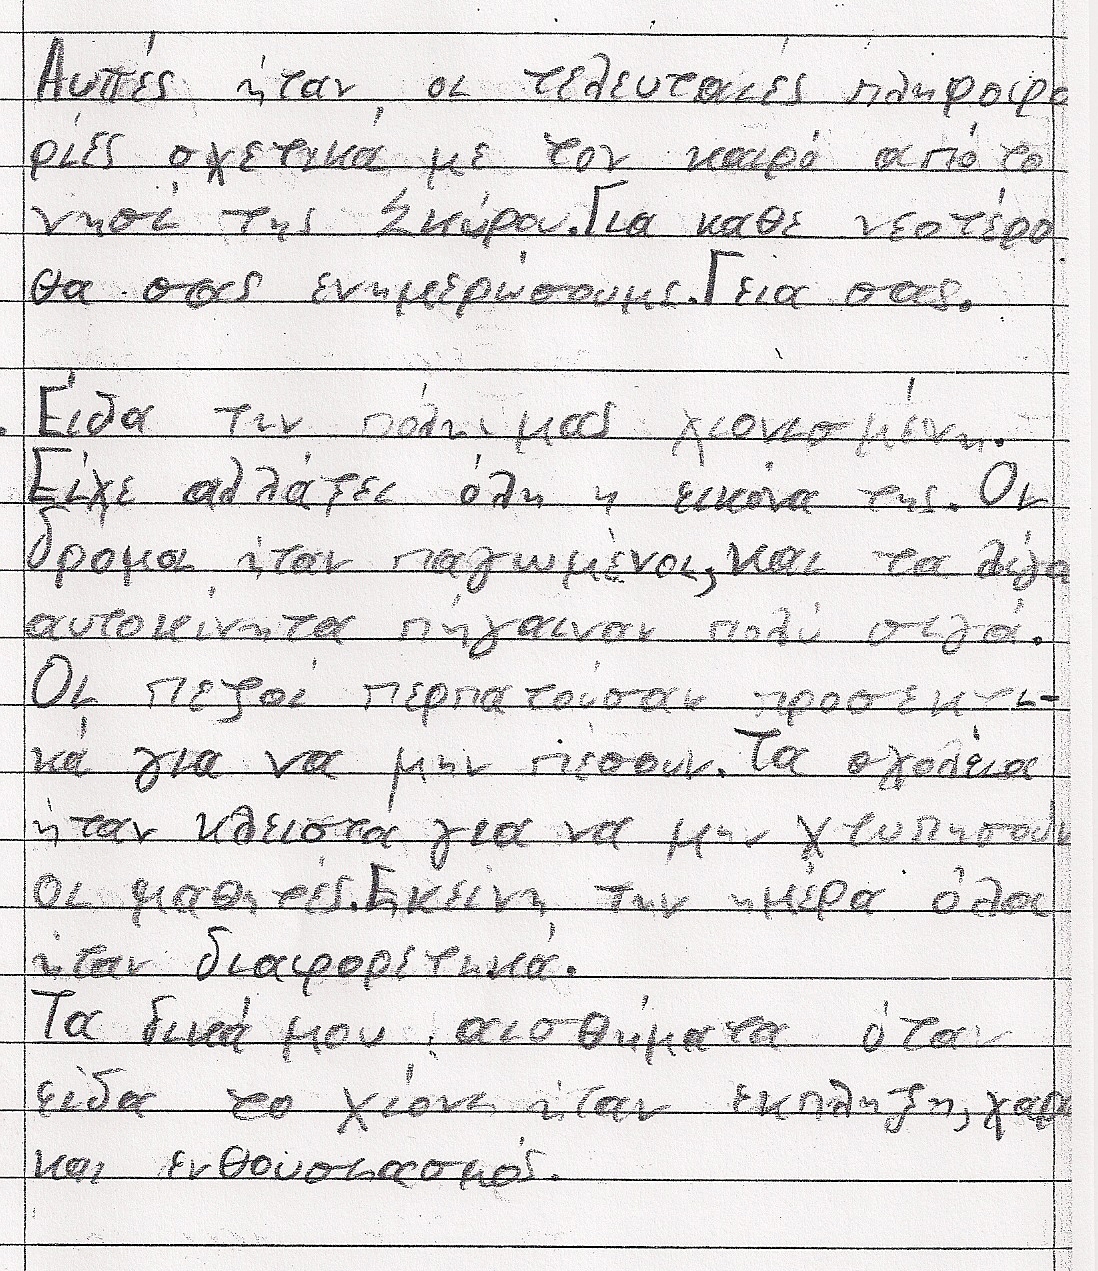 Αυτές ήταν οι τελευταιές πληροφο
ριές σχετικά με τον καιρό από το
νησί της Σκύρου. Για καθε νεοτέρο
θα σας ενημερώσουμε. Γεια σας.
Είδα την πόλη μας χιονισμένη.
Είχε αλλάξει όλη η εικόνα της. Οι
δρομοι ήταν παγωμένοι, και τα λίγα
αυτοκίνητα πήγαιναν πολύ σιγά.
Οι πεζοί περπατούσαν προσεκτι-
κά για να μην πέσουν. Τα σχολεία
ήταν κλειστά για να μην χτυπησουν
οι μαθητές. Εκείνη την ημέρα όλα
ήταν διαφορετηκά.
Τα δικά μου αισθήματα όταν
είδα το χιόνι ήταν εκπληξη, χαρα
και ενθουσιασμός.